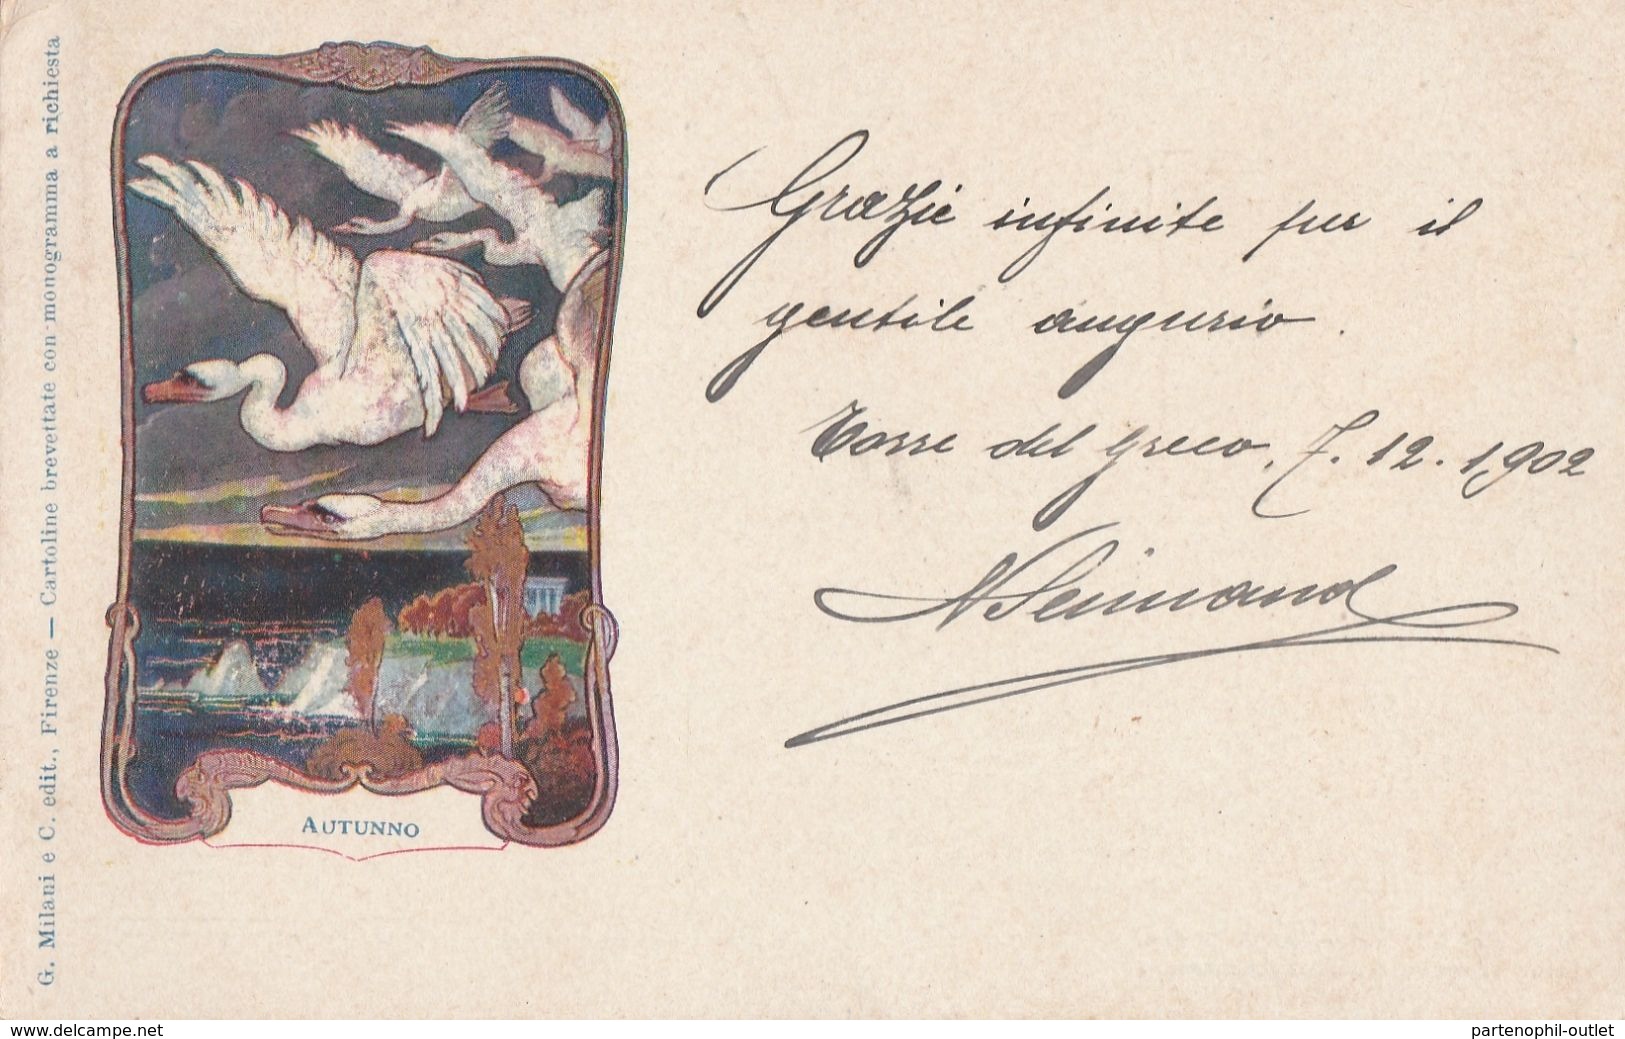 G. Milani e C. edit., Firenze — Cartoline brevettate con monogramma a richiesta
AUTUNNO
Grazie infinite per il
gentile augurio.
Torre del Greco, 7.12.1902
www.delcampe.net
partenophil-outlet